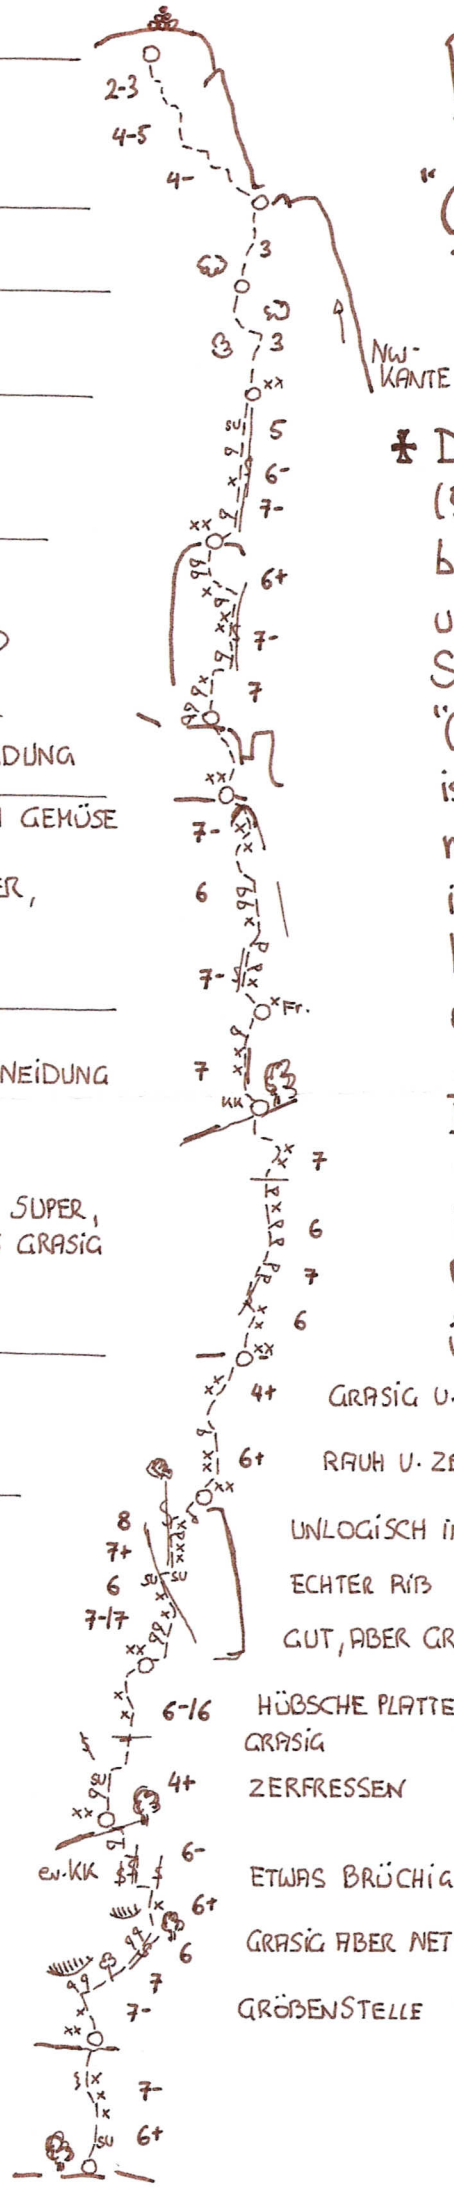 2-3
4-5
4-
3
3
NW-
KANTE
xx
SU
5
6-
x
7-
xx
6+
x
xx
7-
x
7
x
DUNG
xx
GEMÜSE
7-
x
ER,
6
x
7-
x
x Fr.
NEIDUNG
7
x
x
KK
x
x
7
SUPER,
GRASIG
x
6
7
6
x
x
xx
xx
4+
GRASIG U.
6+
RAUH U. ZE
xx
xx
8
7+
UNLOGISCH i
SU
SU
6
ECHTER RIß
7-/7
GUT, ABER GR
xx
x
x
6-/6
HÜBSCHE PLATTE
GRASIG
SU
4+
ZERFRESSEN
xx
6-
ev. KK
ETWAS BRÜCHIG
6+
x
6
GRASIG ABER NET
7
7-
GRÖßENSTELLE
x
xx
x
7-
x
x
6+
SU